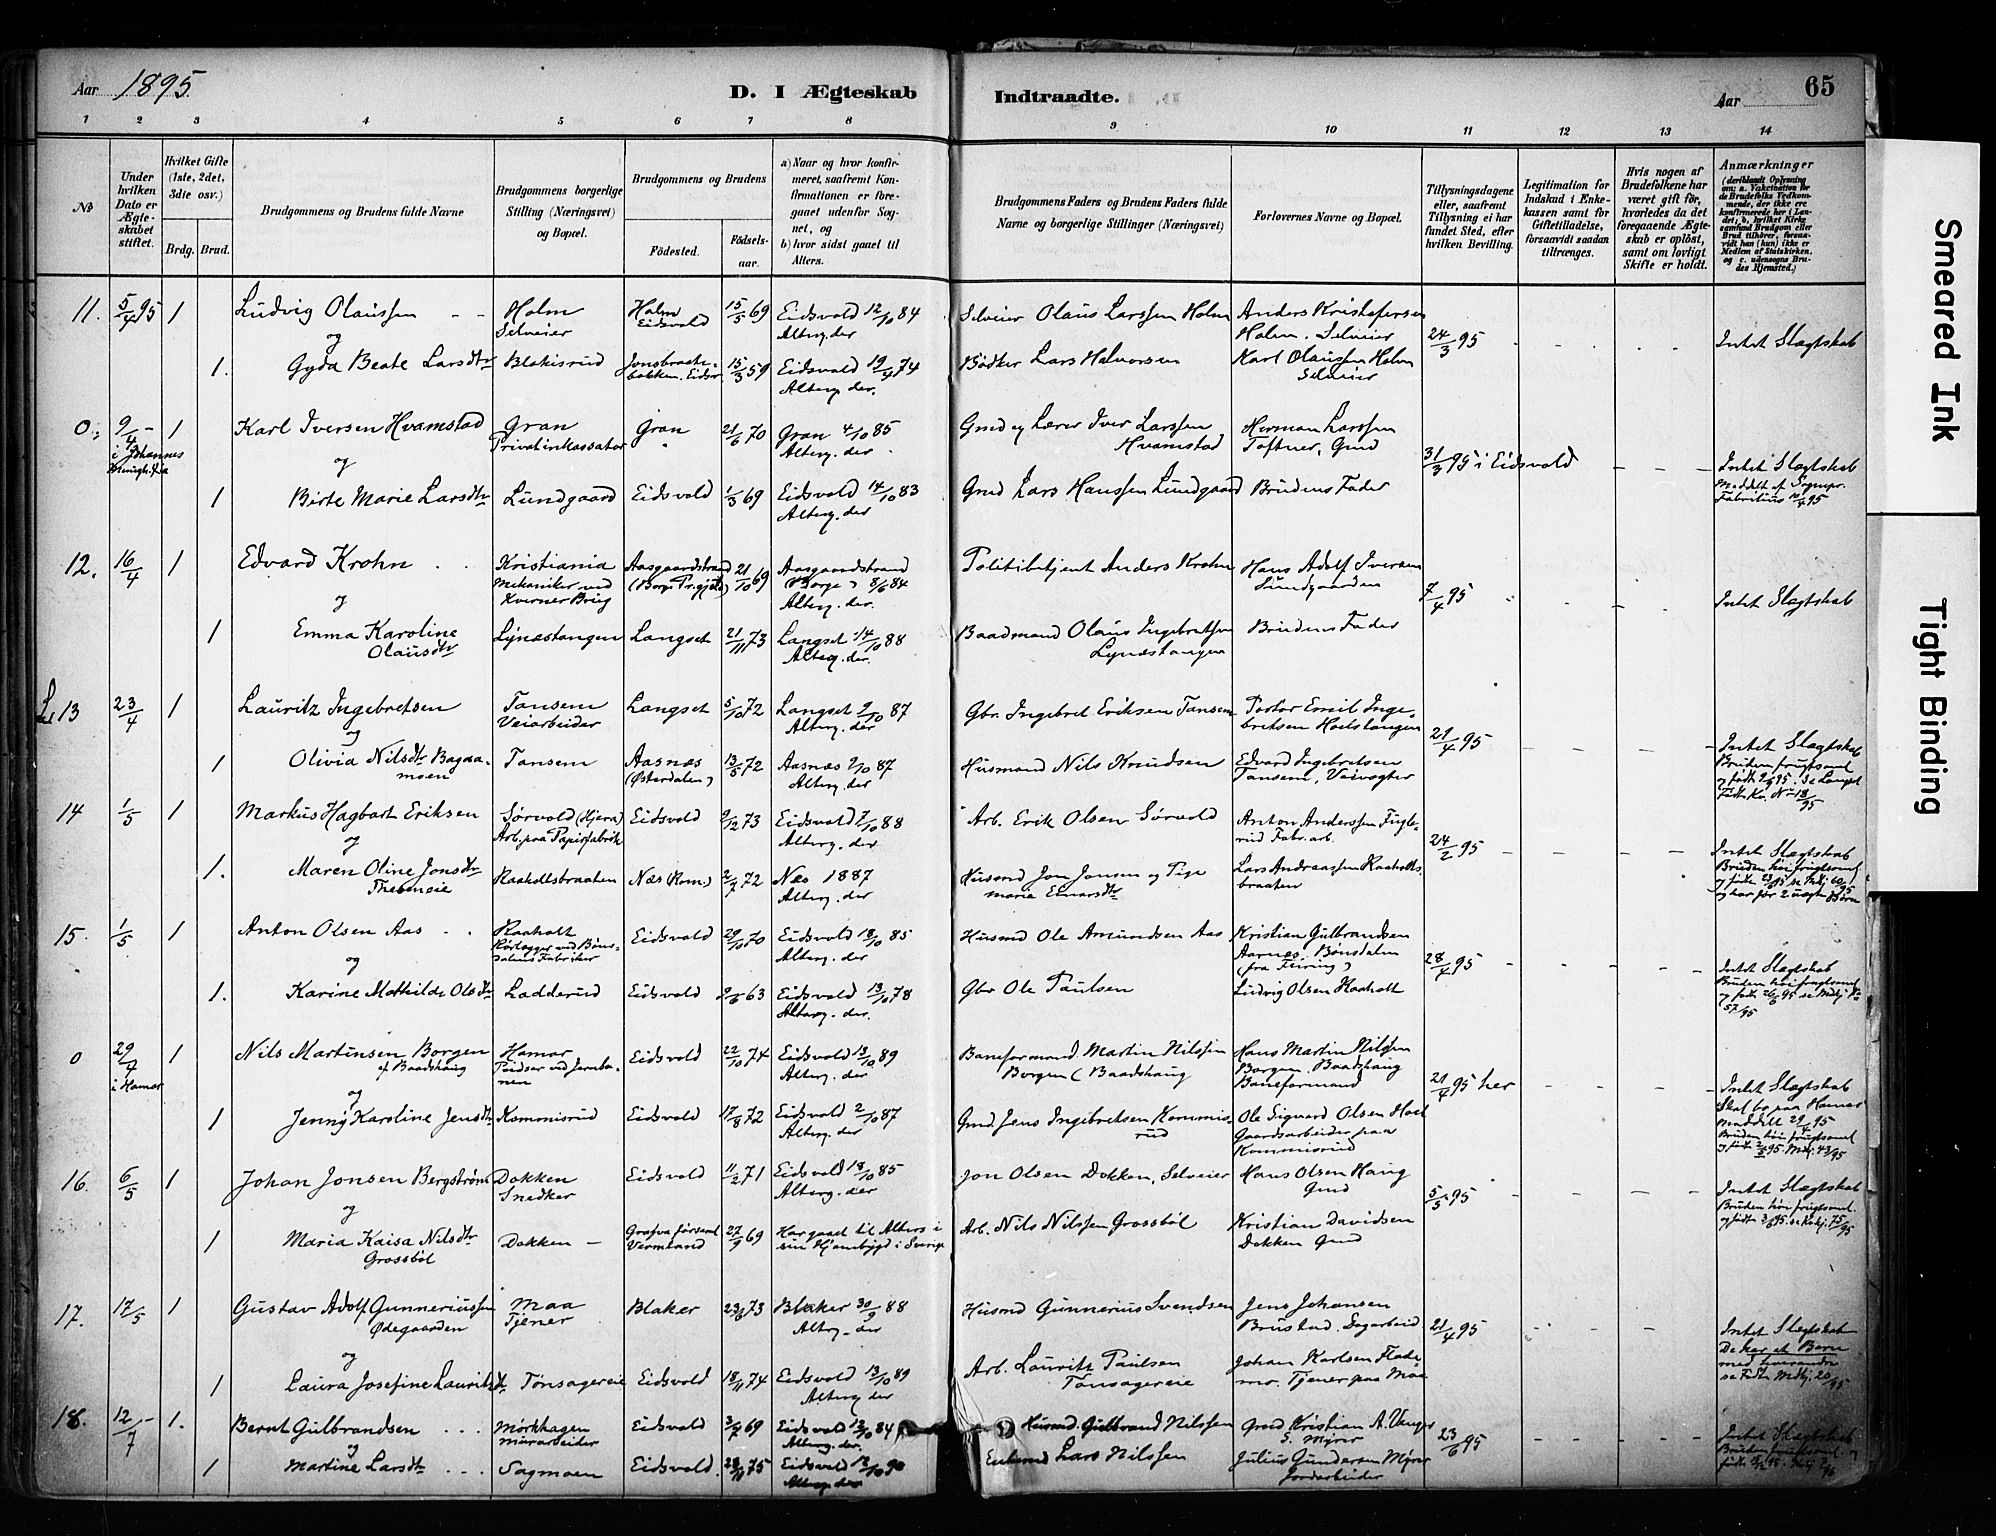 Aar 1895
D. I Ægteskab
Indtraadte.
Aar
65
1 2 3 4 5 6 7 8 9 10 11 12 13 14
No
Under hvilken Dato er Ægteskabet stiftet.
Hvilket Gifte (1ste, 2det, 3die osv.)
Brdg. Brud.
Brudgommens og Brudens fulde Navne
Brudgommens borgerlige Stilling (Næringsvei) og Bopæl.
Brudgommens og Brudens
Fødested.
Fødsels-aar.
a) Naar og hvor konfirmeret, saafremt Konfirmationen er foregaaet udenfor Sognet, og
b) hvor sidst gaaet til Alters.
Brudgommens Faders og Brudens Faders fulde Navne og borgerlige Stillinger (Næringsvei)
Forlovernes Navne og Bopæl.
Tillysningsdagene eller, saafremt Tillysning ei har fundet Sted, efter hvilken Bevilling.
Legitimation for Indskud i Enkekassen samt for Giftetilladelse, forsaavidt saadan tiltrænges.
Hvis nogen af Brudefolkene har været gift før, hvorledes da det foregaaende Ægteskab er opløst, samt om lovligt Skifte er holdt.
Anmærkninger (deriblandt Oplysning om: a. Vakcination for de Brudefolks Vedkommende, der ikke ere konfirmerede her i Landet; b. hvilket Kirkesamfund Brudgom eller Brud tilhører, forsaavidt han (hun) ikke er Medlem af Statskirken, og c. udensogns Brudes Hjemsted.)
11. 5/4 95 1 Ludvig Olaussen Holm Selveier Holm Eidsvold 15/5 69 Eidsvold 12/10 84 Alterg. der Selveier Olaus Larssen Holm Anders Kristofersen Holm. Selveier 24/3 95 Intet Slægtskab
og
1. Gyda Beate Larsdtr Blekisrud Jonsbraatebakken. Eidsv. 15/3 59 Eidsvold 19/4 74 Alterg. der. Bødker Lars Halvorsen Karl Olaussen Holm Selveier
0. 9/4 - i Johannes 1 Karl Iversen Hvamstad Gran Privatinkassator Gran 21/6 70 Gran 4/10 85 Alterg. der Gmd og Lærer Iver Larssen Hvamstad Herman Larssen Toftner, Gmd 31/3 95 i Eidsvold Intet Slægtskab
og
1 Birte Marie Larsdtr Lundgaard Eidsvold 1/3 69 Eidsvold 14/10 83 Alterg. der Gmd Lars Hanssen Lundgaard Brudens Fader Meddelt af Sognepr. Fabritius 10/4 95
12. 16/4 1 Edvard Krohn Kristiania Mekaniker ved Kværner Brug Aasgaardstrand (Borge Prgjeld) 21/10 69 Aasgaardstrand (Borge) 8/6 84 Alterg. der. Politibetjent Anders Krohn Hans Adolf Iversen Lundgaarden 7/4 95 Intet Slægtskab
og
1 Emma Karoline Olausdtr Lynæstangen Langset 21/11 73 Langset 14/10 88 Alterg. der. Baadmand Olaus Ingebretsen Lynæstangen Brudens Fader
13 23/4 1 Lauritz Ingebretsen Tansem Veiarbeider Langset 5/10 72 Langset 9/10 87 Alterg. der Gbr. Ingebret Eriksen Tansem Portør Emil Ingebretsen Hoelstangen 21/4 95 Intet Slægtskab
og
1 Olivia Nilsdtr Bagaamoen Tansem Aasnæs (Østerdalen) 13/5 72 Aasnæs 2/10 87 Alterg. der Husmand Nils Knudsen Edvard Ingebretsen Tansem, Veivogter Bruden frugtsomel og fødte 2/6 95. se Langset Fødte Kv. No 18/95
14 1/5 1 Markus Hagbart Eriksen Sørvold (Hjera) Arb. paa Papirfabrik Eidsvold 9/12 73 Eidsvold 7/10 88 Alterg. der Arb. Erik Olsen Sørvold Anton Anderssen Fuglerud Fabr. arb. 24/2 95 Intet Slægtskab
og
1. Maren Oline Jonsdtr Raaholtsbraaten Næs (Rom.) 2/7 72 Næs 1887 Alterg. der Husmd Jon Jonsen og Pige Maria Einarsdtr Lars Andreassen Raaholtsbraaten Bruden høi frugtsomel
15. 1/5 1 Anton Olsen Aas Raaholt Rørlægger ved Bønsdalens Fabriker Eidsvold 29/10 70 Eidsvold 18/10 85 Alterg. der Husmd Ole Amundsen Aas Kristian Gulbrandsen Aarnes. Bønsdalen (fra Feiring) 28/4 95 Intet Slægtskab
og
1. Karine Mathilde Olsdtr Ladderud Eidsvold 9/6 63 Eidsvold 13/10 78 Alterg. der. Gbr Ole Paulsen Ludvig Olsen Raaholt Bruden høi frugtsomel og fødte 26/6 95 se Mdkj No 57/95
0 29/4 i Hamar 1 Nils Martinsen Borgen af Baadshaug Hamar Pudser ved Jernbanen Eidsvold 22/10 74 Eidsvold 13/10 89 Alterg. der Baneformand Martin Nilssen Borgen (Baadshaug Hans Martin Nilssen Borgen. Baadshaug Baneformand 21/4 95 her Intet Slægtskab
og
1 Jenny Karoline Jensdtr Kommisrud Eidsvold 17/8 72 Eidsvold 2/10 87 Alterg. der Gmd Jens Ingebretsen Kommisrud Ole Sigvard Olsen Hoel Gaardsarbeider paa Kommisrud Skal bo paa Hamar Meddelt 29/4 95 Bruden høi frugtsomel og fødte 2/5 95. Mdkj. 43/95
16. 6/5 1 Johan Jonsen Bergstrøm Dokken Snedker Eidsvold 11/2 71 Eidsvold 18/10 85 Alterg. der Jon Olsen Dokken, Selveier Hans Olsen Haug Gmd 5/5 95 Intet Slægtskab
og
1 Maria Kaisa Nilsdtr Grossbøl Dokken Grafva församl Vermland 27/9 69 Har gaaet til Alters i sin Hjembygd i Sverige Arb. Nils Nilssen Grossbøl Kristian Davidsen Dokken Gmd Bruden høi frugtsomel
17. 17/5 1 Gustav Adolf Gunneriussen Ødegaarden Maa Tjener Blaker 23/6 73 Blaker 30/9 88 Alterg. der Husmd Gunnerius Svendsen Jens Johansen Brustad. Dagarbeid 21/4 95 Intet Slægtskab
og
1 Laura Josefine Lauritzdtr. Tønsagereie Eidsvold 18/11 74 Eidsvold 13/10 89 Alterg der Arb. Lauritz Paulsen Tønsagereie Johan Karlsen Flademo. Tjener paa Maa De har et Barn med hverandre se Fødte Mdkj. 20/95
18. 12/7 - 1. Bernt Gulbrandsen Mørkhagen Murarbeider Eidsvold 3/7 69 Eidsvold 12/10 84 Alterg. der. Husmd. Gulbrand Nilssen Gmd Kristian A. Vanger S. Myrer 23/6 95 Intet Slægtskab
og
1 Martine Larsdtr Sagmoen Eidsvold 28/11 75 Eidsvold 12/10 90 Alterg. der Enkemd Lars Nilssen Julius Gundersen Myrer Jordarbeider Bruden frugtsomel
Smeared Ink
Tight Binding